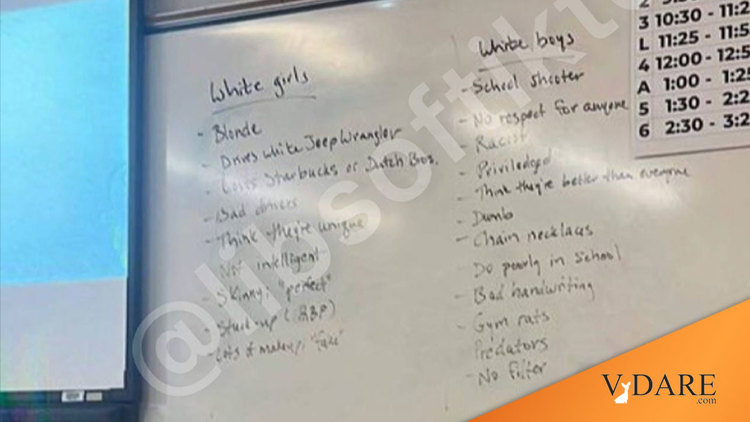 White girls
- Blonde
- Drives white Jeep Wrangler
- Loves Starbucks or Dutch Bros.
- Bad drivers
- Think they're unique
Not intelligent
- Skinny, "perfect"
- Stuck-up (RBF)
- Lots of makeup, "fake"
White boys
- School shooter
- No respect for anyone
- Racist
- Priviledged
- Think they're better than everyone
- Dumb
- Chain necklaces
- Do poorly in school
- Bad handwriting
- Gym rats
- Predators
- No filter
3 10:30 - 11:2
L 11:25 - 11:5
4 12:00 - 12:5
A 1:00 - 1:25
5 1:30 - 2:2
6 2:30 - 3:2
@libsoftikto
VDARE
.com